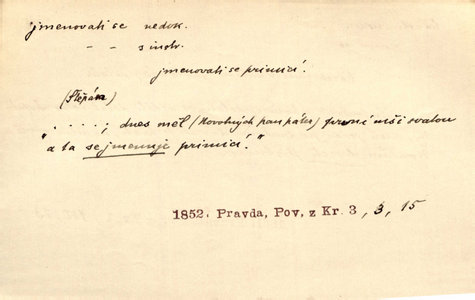 jmenovati se nedok.
- - s instr.
jmenovati se primicí.
(Štěpán)
". . . . ; dnes měl (Novotných pan páter) prvné mši svatou
a ta se jmenuje primicí."
1852. Pravda, Pov. z Kr. 3, 3, 15